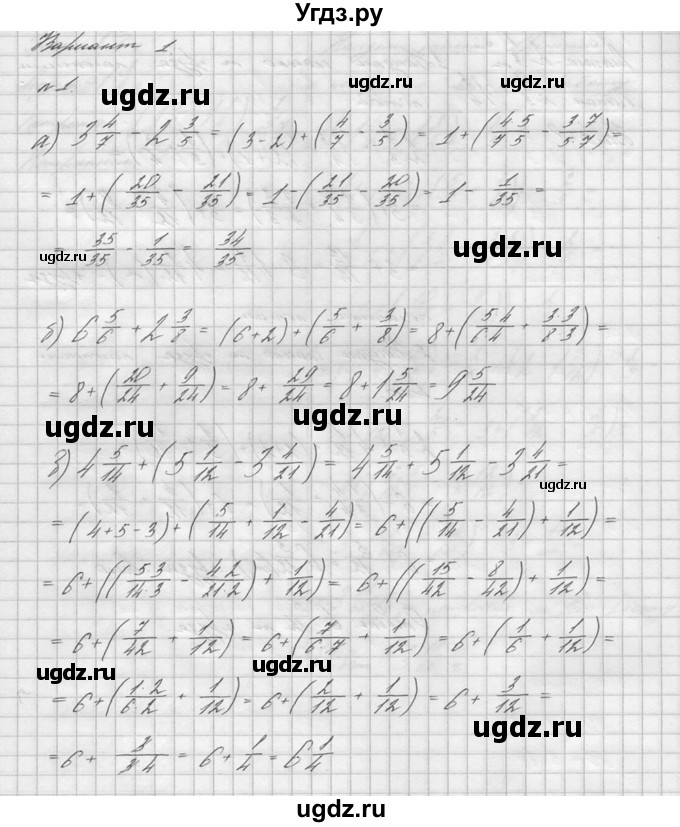 Угдз.ру
Вариант 1
ugdz.ru
№1.
ugdz.ru
а) 3 4/7 - 2 3/5 = (3-2)+(4/7 - 3/5) = 1+(4·5/7·5 - 3·7/5·7) =
= 1+(20/35 - 21/35) = 1-(21/35 - 20/35) = 1 - 1/35 =
= 35/35 - 1/35 = 34/35
ugdz.ru
ugdz.ru
б) 6 5/6 + 2 3/8 = (6+2)+(5/6 + 3/8) = 8+(5·4/6·4 + 3·3/8·3) =
= 8+(20/24 + 9/24) = 8 + 29/24 = 8 + 1 5/24 = 9 5/24
ugdz.ru
ugdz.ru
в) 4 5/14 + (5 1/12 - 3 4/21) = 4 5/14 + 5 1/12 - 3 4/21 =
ugdz.ru
= (4+5-3)+(5/14 + 1/12 - 4/21) = 6+((5/14 - 4/21)+1/12) =
= 6+((5·3/14·3 - 4·2/21·2)+1/12) = 6+((15/42 - 8/42)+1/12) =
= 6+(7/42 + 1/12) = 6+(7/6·7 + 1/12) = 6+(1/6 + 1/12) =
ugdz.ru
ugdz.ru
= 6+(1·2/6·2 + 1/12) = 6+(2/12 + 1/12) = 6 + 3/12 =
ugdz.ru
= 6 + 3/3·4 = 6 + 1/4 = 6 1/4
ugdz.ru